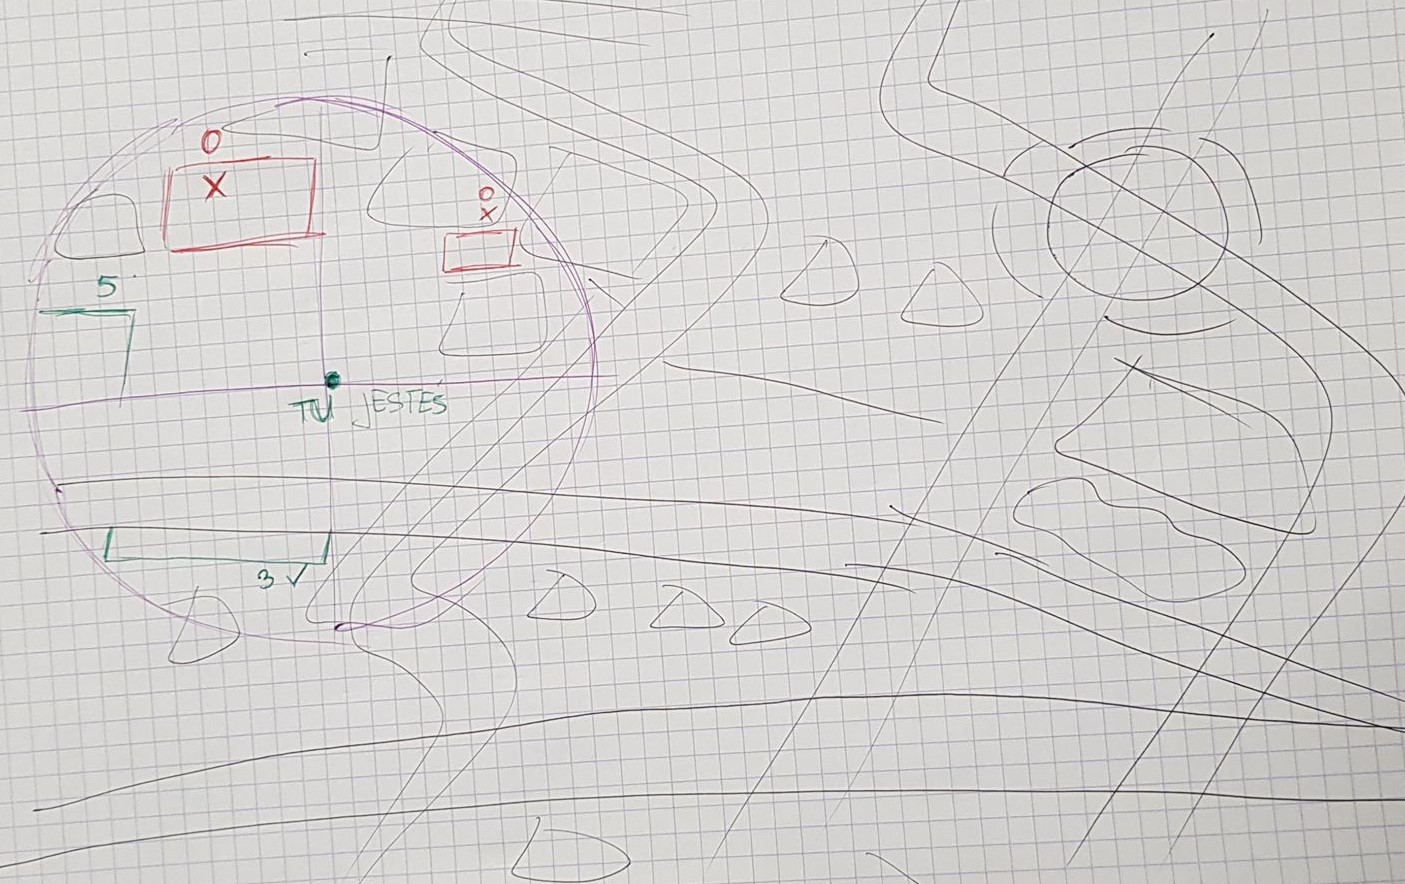 O
X
O
X
5
TU JESTEŚ
3 ✓